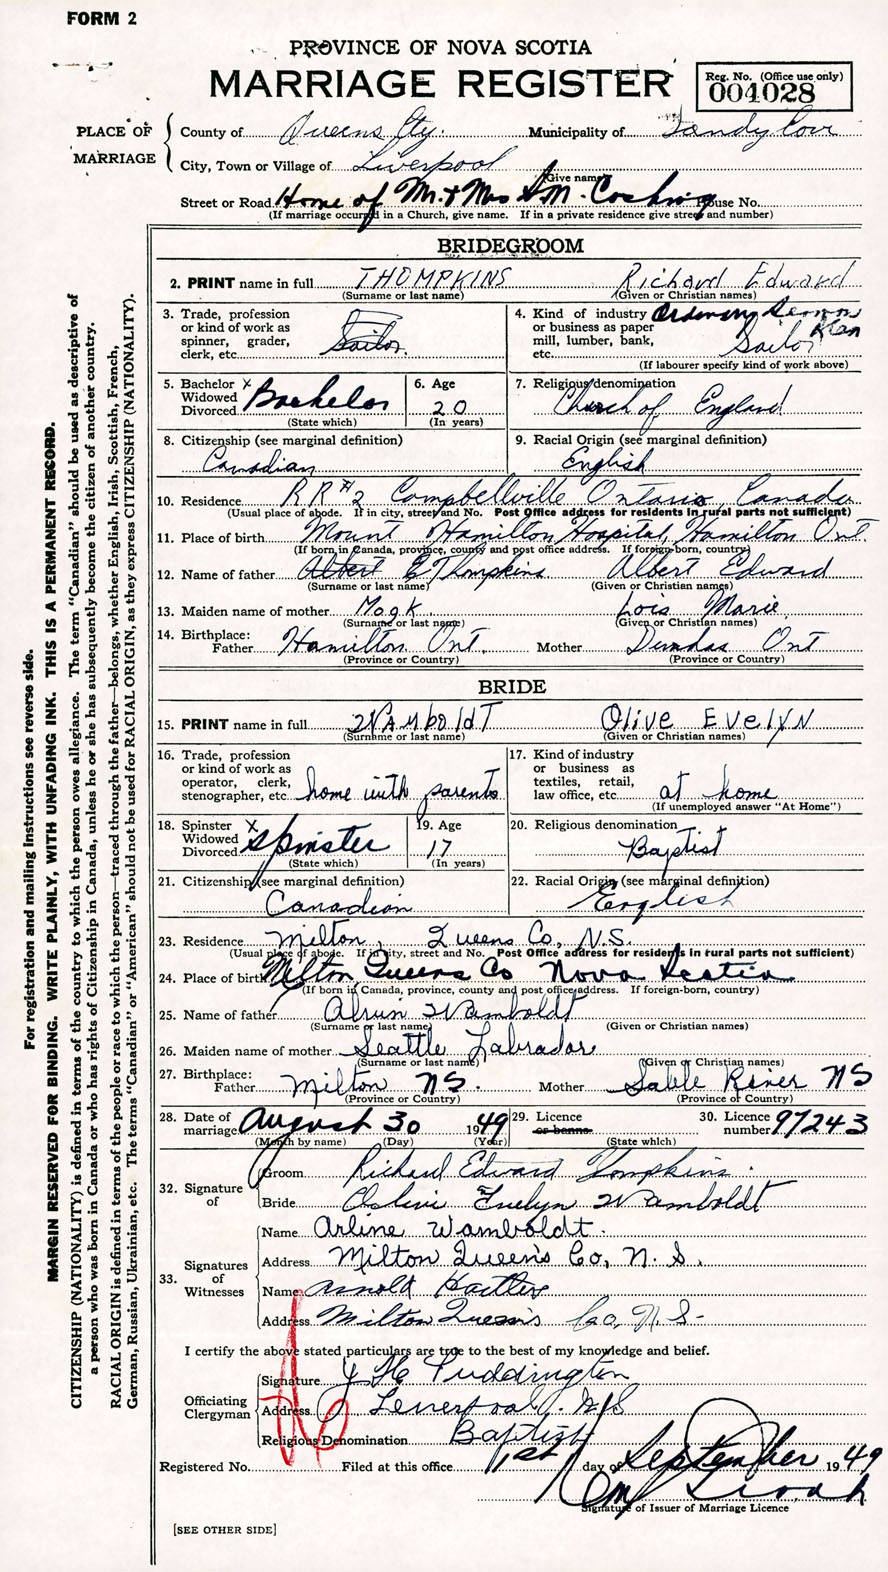 FORM 2
PROVINCE OF NOVA SCOTIA
MARRIAGE REGISTER
Reg. No. (Office use only)
004028
PLACE OF MARRIAGE
County of Queens Cty. Municipality of Sandy Cove
City, Town or Village of Liverpool
(Give name)
Street or Road Home of Mr. & Mrs House No.
(If marriage occurred in a Church, give name. If in a private residence give street and number)
BRIDEGROOM
2. PRINT name in full THOMPKINS Richard Edward
(Surname or last name) (Given or Christian names)
3. Trade, profession or kind of work as spinner, grader, clerk, etc. Sailor
4. Kind of industry or business as paper mill, lumber, bank, etc. Ordinary Seaman Sailor
(If labourer specify kind of work above)
5. Bachelor Widowed Divorced x Bachelor
(State which)
6. Age 20
(In years)
7. Religious denomination Church of England
8. Citizenship (see marginal definition) Canadian
9. Racial Origin (see marginal definition) English
10. Residence RR #2 Campbellville Ontario, Canada
(Usual place of abode. If in city, street and No. Post Office address for residents in rural parts not sufficient)
11. Place of birth Mount Hamilton Hospital, Hamilton Ont.
(If born in Canada, province, county and post office address. If foreign-born, country)
12. Name of father Albert E Thompkins Albert Edward
(Surname or last name) (Given or Christian names)
13. Maiden name of mother Mock Lois Marie
(Surname or last name) (Given or Christian names)
14. Birthplace: Father Hamilton Ont. Mother Dundas Ont
(Province or Country) (Province or Country)
BRIDE
15. PRINT name in full WAMBOLDT Olive EVELYN
(Surname or last name) (Given or Christian names)
16. Trade, profession or kind of work as operator, clerk, stenographer, etc. home with parents
17. Kind of industry or business as textiles, retail, law office, etc. at home
(If unemployed answer "At Home")
18. Spinster Widowed Divorced x Spinster
(State which)
19. Age 17
(In years)
20. Religious denomination Baptist
21. Citizenship (see marginal definition) Canadian
22. Racial Origin (see marginal definition) English
23. Residence Milton, Queens Co, N.S.
(Usual place of abode. If in city, street and No. Post Office address for residents in rural parts not sufficient)
24. Place of birth Milton Queens Co Nova Scotia
(If born in Canada, province, county and post office address. If foreign-born, country)
25. Name of father Wamboldt
(Surname or last name) (Given or Christian names)
26. Maiden name of mother Seattle Labrador
(Surname or last name) (Given or Christian names)
27. Birthplace: Father Milton NS. Mother Sable River NS
(Province or Country) (Province or Country)
28. Date of marriage August 30 1949
(Month by name) (Day) (Year)
29. Licence or banns
(State which)
30. Licence number 97243
32. Signature of
Groom Richard Edward Thompkins.
Bride Evelyn Wamboldt
33. Signatures of Witnesses
Name Arline Wamboldt.
Address Milton Queen's Co, N.S.
Name Arnold
Address Milton Queen's Co, N.S.
I certify the above stated particulars are true to the best of my knowledge and belief.
Officiating Clergyman
Signature Puddington
Address Liverpool. N/S
Religious Denomination Baptist
Registered No. Filed at this office 1st day of September 1949
Signature of Issuer of Marriage Licence
[SEE OTHER SIDE]
For registration and mailing instructions see reverse side.
MARGIN RESERVED FOR BINDING. WRITE PLAINLY, WITH UNFADING INK. THIS IS A PERMANENT RECORD.
CITIZENSHIP (NATIONALITY) is defined in terms of the country to which the person owes allegiance. The term "Canadian" should be used as descriptive of
a person who was born in Canada or who has rights of Citizenship in Canada, unless he or she has subsequently become the citizen of another country.
RACIAL ORIGIN is defined in terms of the people or race to which the person—traced through the father—belongs, whether English, Irish, Scottish, French,
German, Russian, Ukrainian, etc. The terms "Canadian" or "American" should not be used for RACIAL ORIGIN, as they express CITIZENSHIP (NATIONALITY).